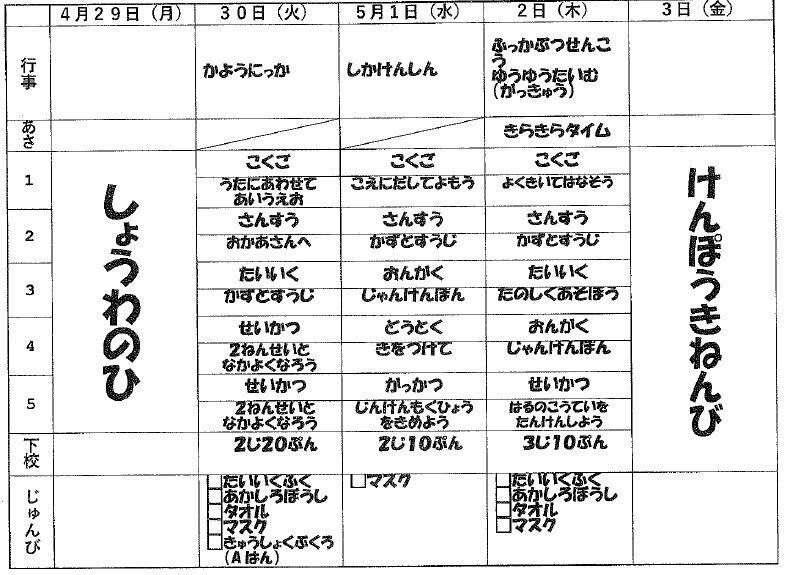 ４月２９日（月） ３０日（火） ５月１日（水） ２日（木） ３日（金）
行事 かようにっか しかけんしん ぶっかぶつせんこ
う
ゆうゆうたいむ
（がっきゅう）
あさ きらきらタイム
1 こくご こくご こくご
うたにあわせて こえにだしてよもう よくきいてはなそう
あいうえお
2 さんすう さんすう さんすう
おかあさんへ かずとすうじ かずとすうじ
3 たいいく おんがく たいいく
かずとすうじ じゃんけんぽん たのしくあそぼう
4 せいかつ どうとく おんがく
2ねんせいと きをつけて じゃんけんぽん
なかよくなろう
5 せいかつ がっかつ せいかつ
2ねんせいと じんけんもくひょう はるのこうていを
なかよくなろう をきめよう たんけんしよう
しょうわのひ
けんぽうきねんび
下校 2じ20ぷん 2じ10ぷん 3じ10ぷん
じゅんび
□たいいくふく □マスク □たいいくふく
□あかしろぼうし □あかしろぼうし
□タオル □タオル
□マスク □マスク
□きゅうしょくぶくろ
（Aはん）